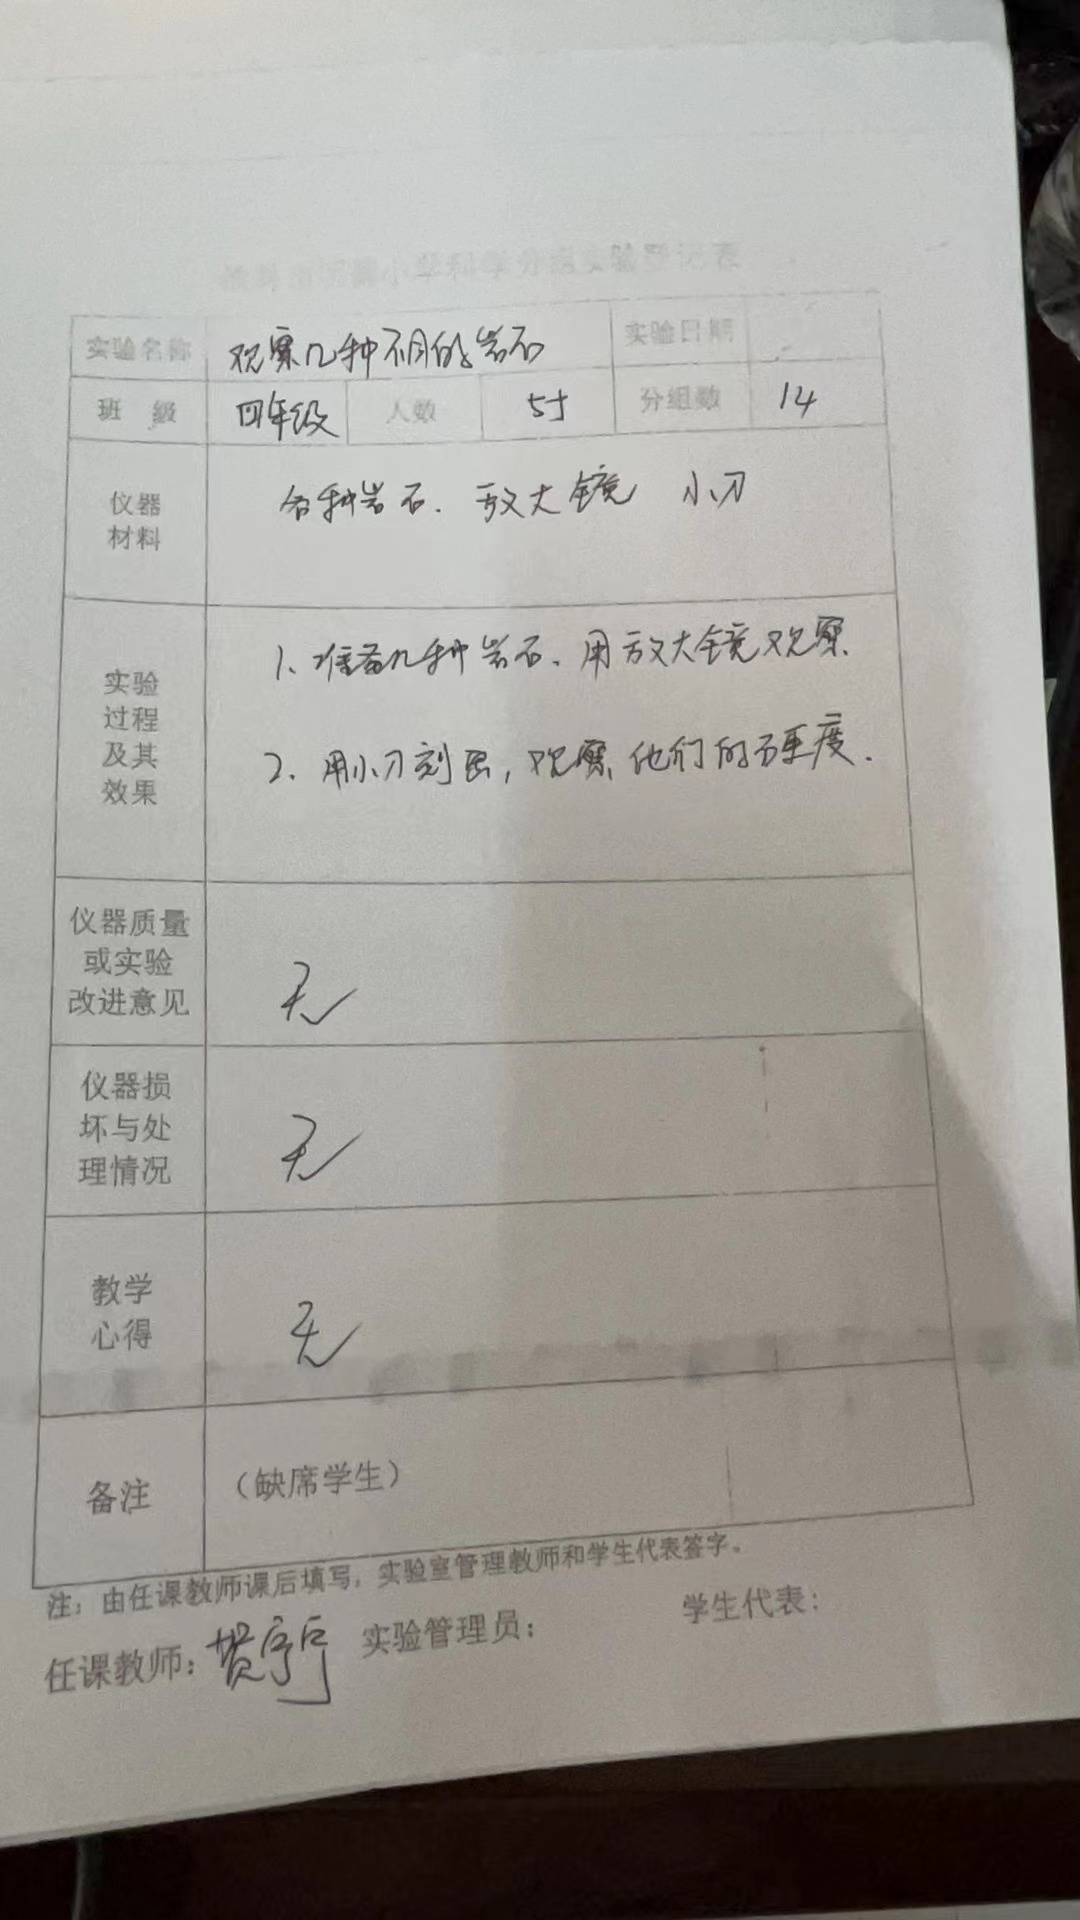 小学科学分组实验登记表
实验名称 观察几种不同的岩石 实验日期
班 级 四年级 人数 分组数 14
仪器 各种岩石. 放大镜 小刀
材料
1、准备几种岩石、用放大镜观察.
实验
过程
及其
效果
2、用小刀刻画,观察他们的硬度.
仪器质量
或实验
改进意见
无
仪器损
坏与处
理情况
无
教学
心得
无
备注 (缺席学生)
注:由任课教师课后填写,实验室管理教师和学生代表签字。
任课教师: 实验管理员: 学生代表: